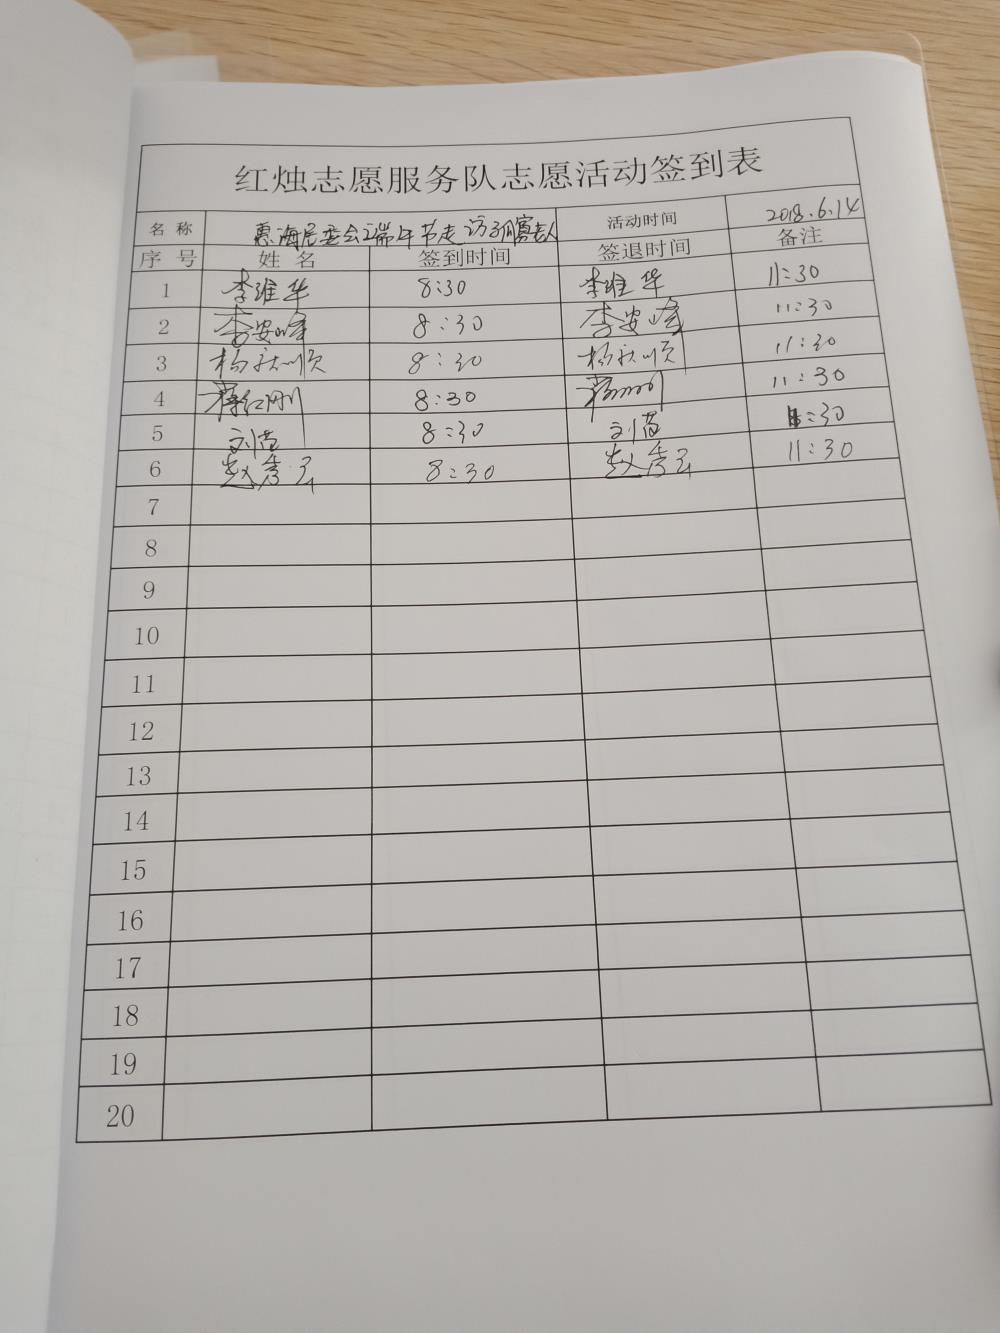 红烛志愿服务队志愿活动签到表
名 称 惠海居委会端午节走访孤寡老人 活动时间 2018.6.14
序 号 姓 名 签到时间 签退时间 备注
1 李维华 8:30 李维华 11:30
2 李安峰 8:30 李安峰 11:30
3 杨秋顺 8:30 杨秋顺 11:30
4 蒋红刚 8:30 11:30
5 刘芳 8:30 刘芳 11:30
6 赵秀 8:30 赵秀 11:30
7
8
9
10
11
12
13
14
15
16
17
18
19
20